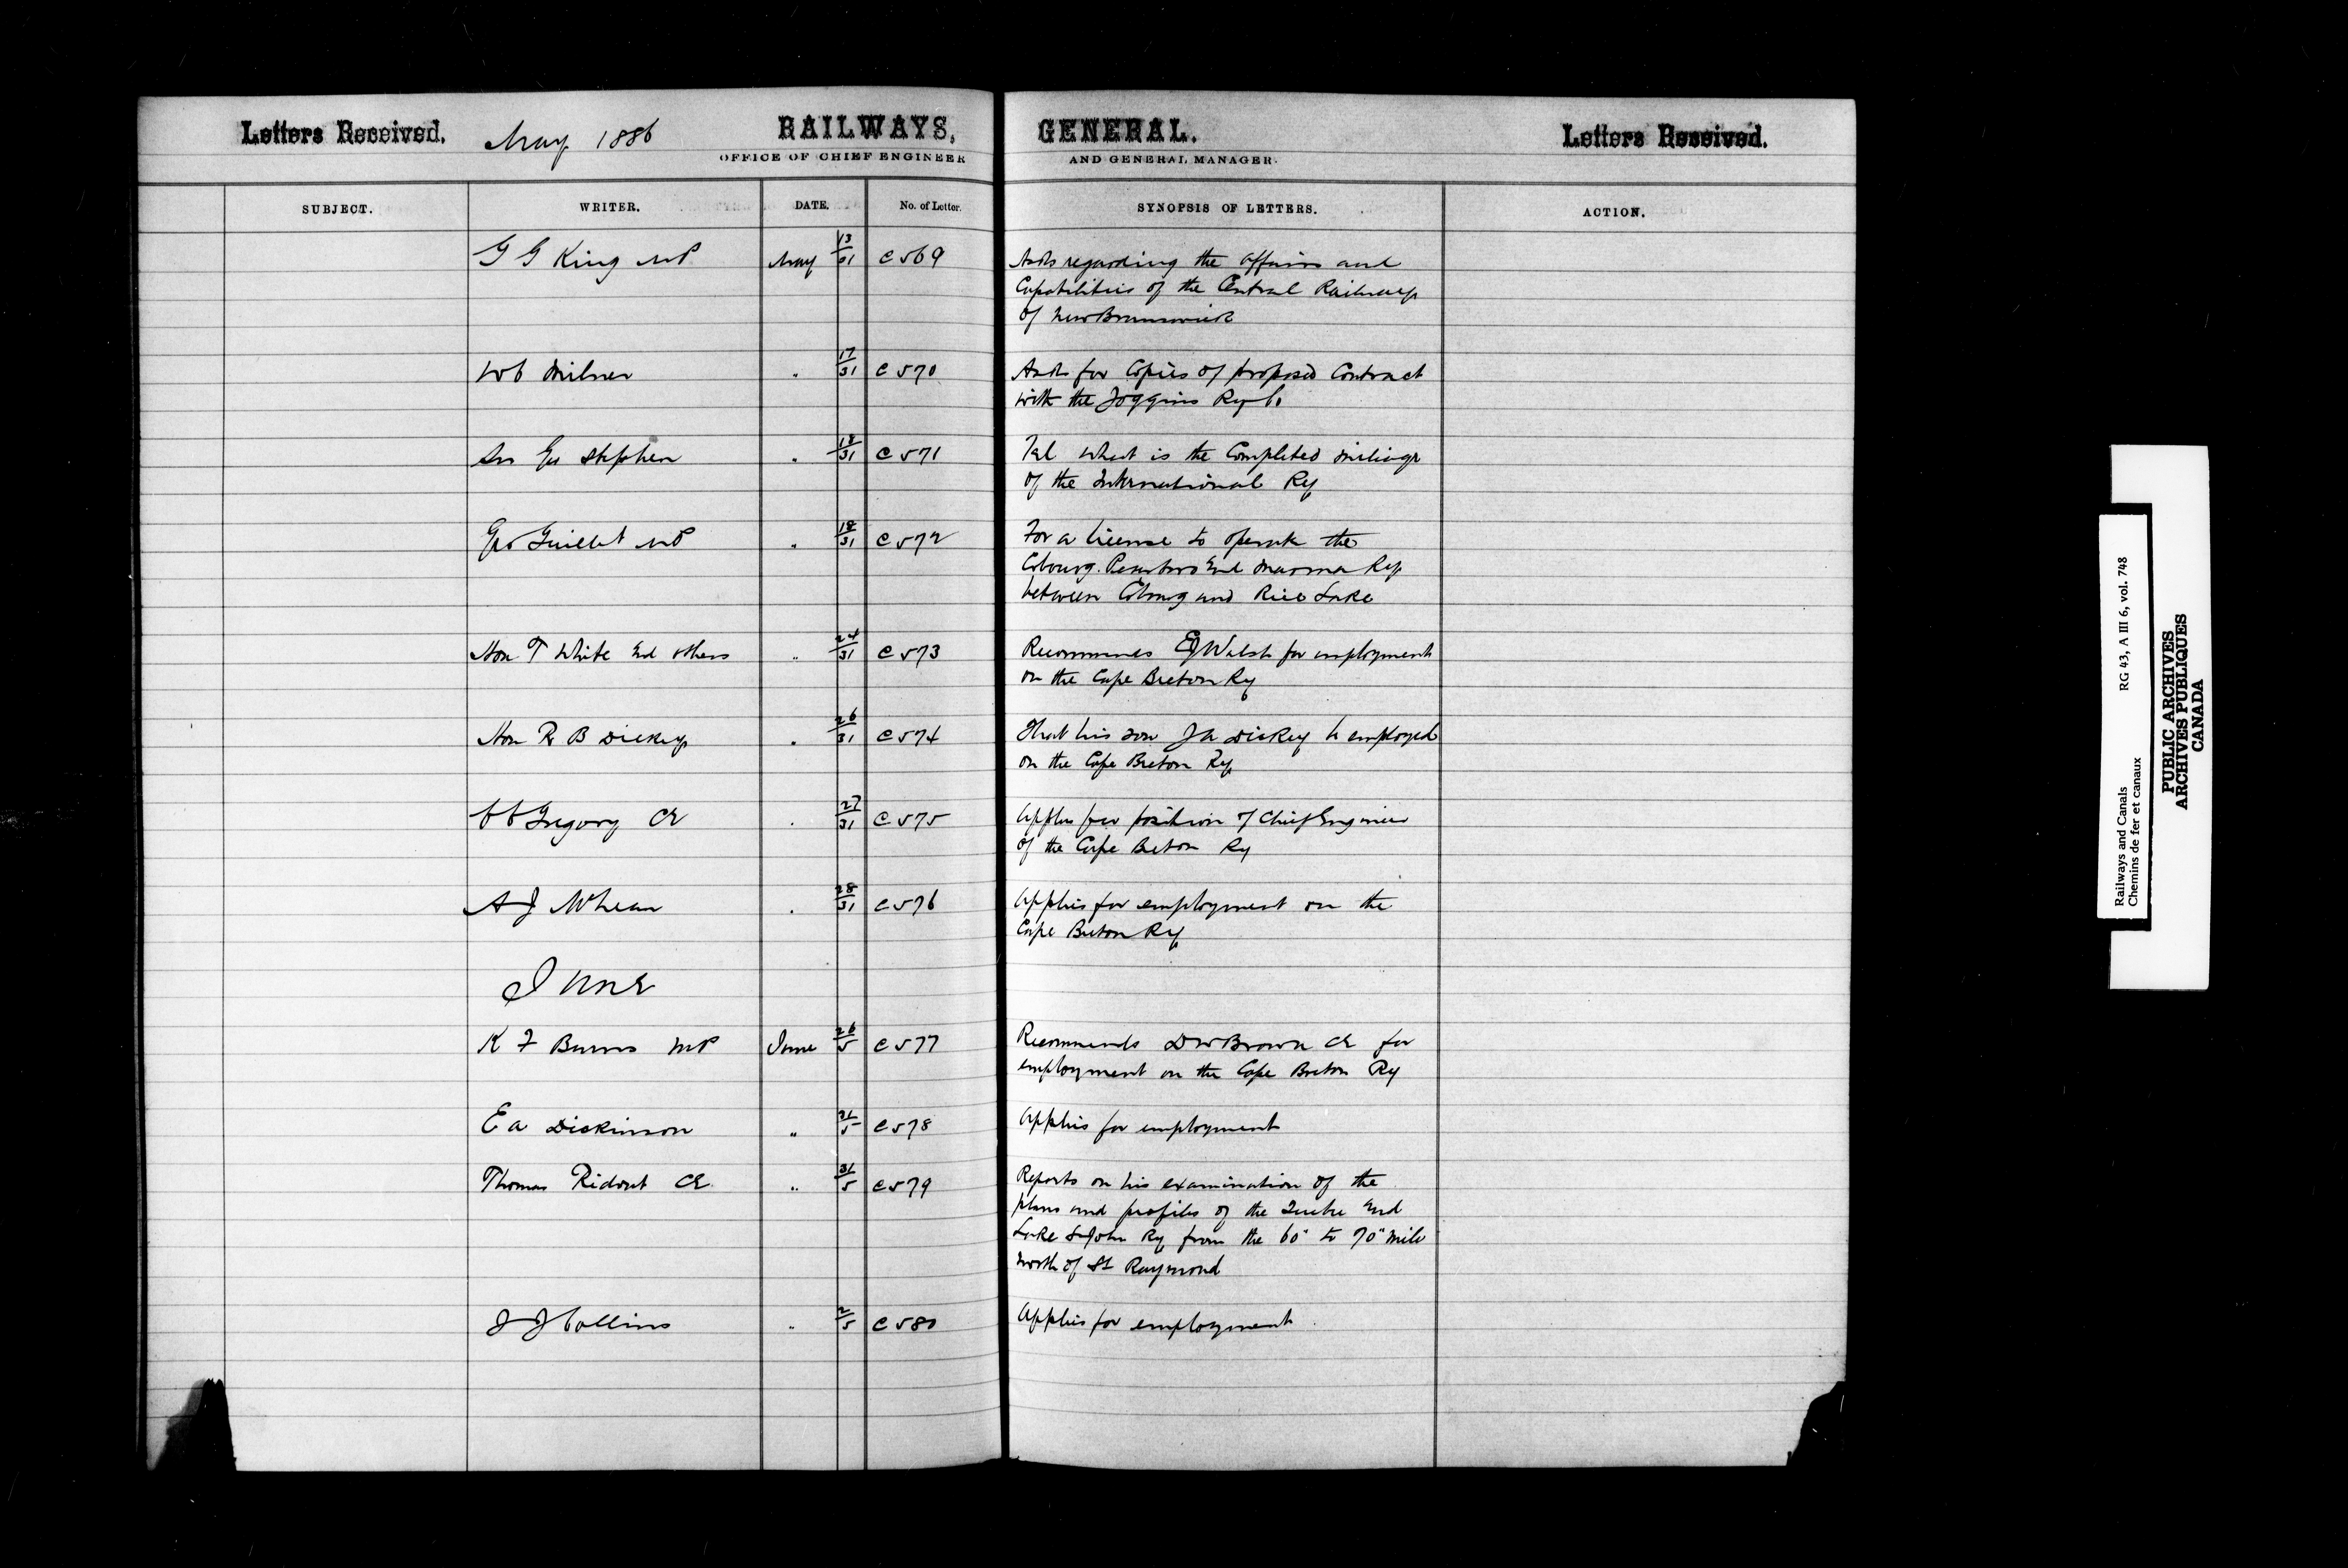 Letters Received. May 1886 RAILWAYS, GENERAL. Letters Received.
OFFICE OF CHIEF ENGINEER AND GENERAL MANAGER.
SUBJECT. WRITER. DATE. No. of Letter. SYNOPSIS OF LETTERS. ACTION.
G G King MP May 13/31 C 569 Asks regarding the affairs and
Capabilities of the Central Railway
of New Brunswick
WC Milner " 17/31 C 570 Asks for Copies of proposed Contract
with the Joggins Ry Co.
Sir Geo Stephen " 18/31 C 571 Tel what is the Completed mileage
of the International Ry
Geo Guillet MP " 18/31 C 572 For a license to operate the
Cobourg. Peterboro and Marmora Ry
between Cobourg and Rice Lake
Hon T White and others " 24/31 C 573 Recommends EJ Walsh for employment
on the Cape Breton Ry
Hon R B Dickey " 26/31 C 574 That his son JA Dickey be employed
on the Cape Breton Ry
CC Gregory CE " 27/31 C 575 Applies for position of Chief Engineer
of the Cape Breton Ry
A J Whean " 28/31 C 576 Applies for employment on the
Cape Breton Ry
June
K F Burns MP June 26/5 C 577 Recommends DW Brown CE for
employment on the Cape Breton Ry
E A Dickinson " 31/5 C 578 Applies for employment
Thomas Ridout CE " 31/5 C 579 Reports on his examination of the
plans and profiles of the Quebec and
Lake St John Ry from the 60" to 70" mile
north of St Raymond
J J Collins " 2/5 C 580 Applies for employment
Railways and Canals RG 43, A III 6, vol. 748
Chemins de fer et canaux
PUBLIC ARCHIVES
ARCHIVES PUBLIQUES
CANADA